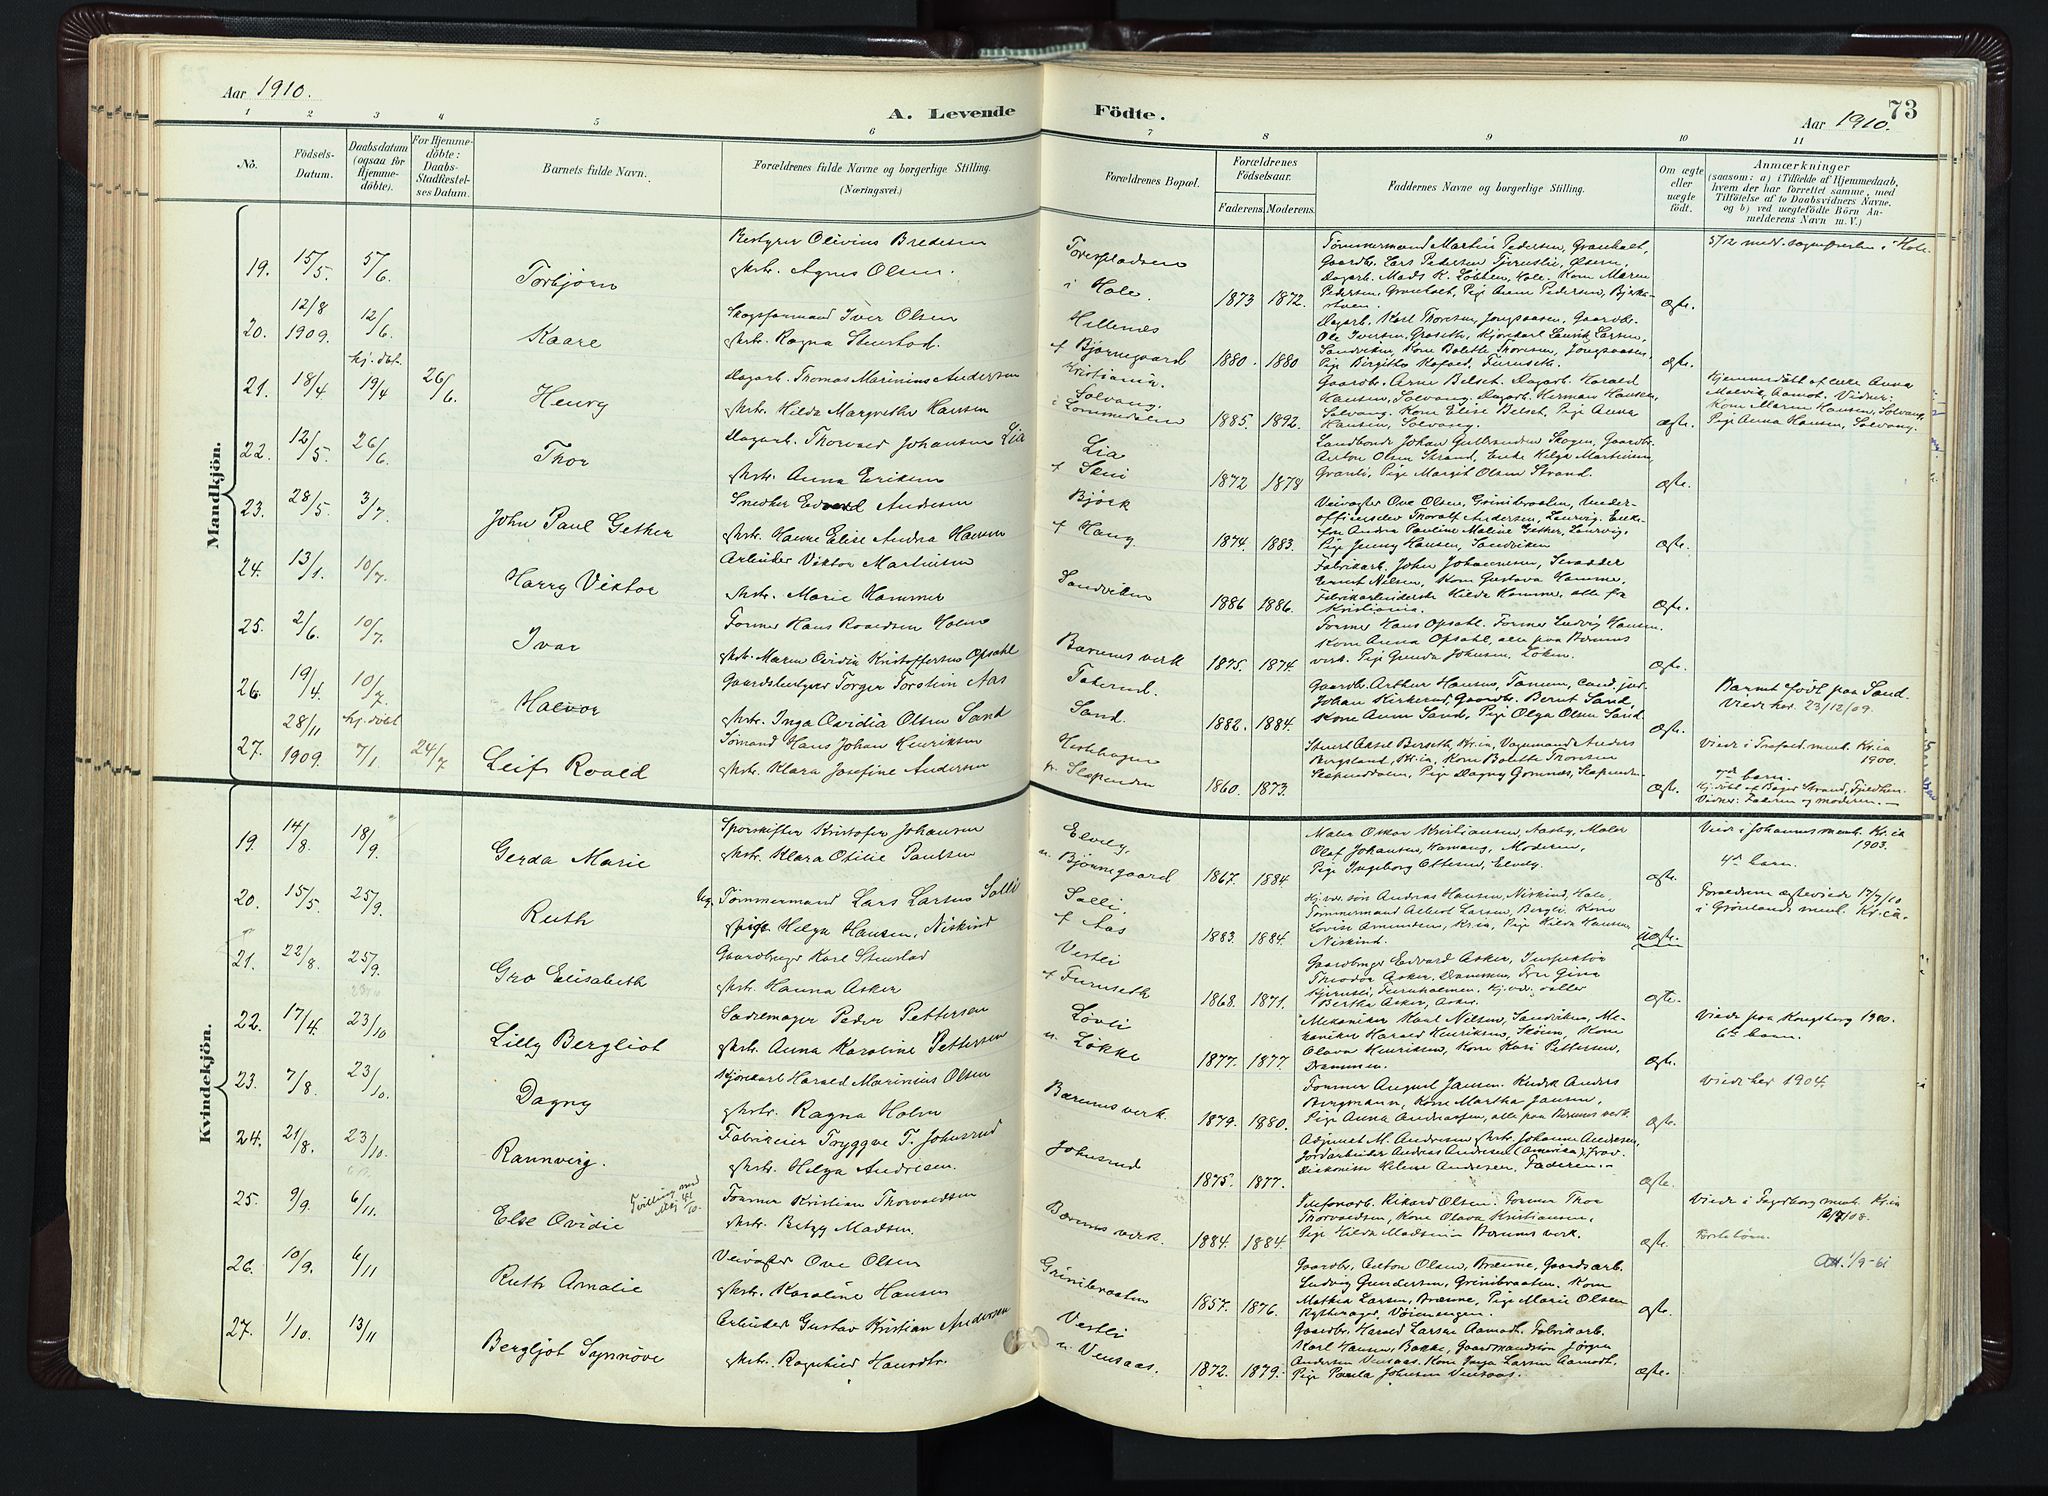 Aar 1910.
A. Levende Födte.
73
Aar 1910.
1 2 3 4 5 6 7 8 9 10 11
No.
Födsels-Datum.
Daabsdatum (ogsaa for Hjemme-döbte).
For Hjemme-döbte: Daabs-Stadfæstel-ses Datum.
Barnets fulde Navn.
Forældrenes fulde Navne og borgerlige Stilling. (Næringsvei.)
Forældrenes Bopæl.
Forældrenes Födselsaar.
Faderens. Moderens.
Faddernes Navne og borgerlige Stilling.
Om ægte eller uægte födt.
Anmærkninger
(saasom: a) i Tilfælde af Hjemmedaab, hvem der har forrettet samme, med Tilföielse af to Daabsvidners Navne. og b) ved uægtefödte Börn An-melderens Navn m. V.)
Mandkjön.
19. 15/5. 5/6. Torbjørn
Bestyrer Olivius Bredesen
Hstr. Agnes Olsen.
i Hole.
1873 1872.
Tømmermand Martin Pedersen,
ægte.
20. 12/8 1909. 12/6. Kaare
Skogsformand Iver Olsen
Hstr. Ragna Stenstad.
Hillenæs
f Bjørnegaard
1880. 1880
ægte.
21. 18/4 hj. døbt. 19/4 26/6. Henry
Dagarb. Thomas Marinius Andersen
Hstr. Hilda Margrethe Hansen
Kristiania.
Solvang.
i Lommedalen
1885. 1892.
Gaardbr. Arne Belset. Dagarb. Harald
Hansen, Solvang. Dagarb. Herman Hansen,
Solvang. Kone Elise Belset, Pige Anna
Hansen, Solvang.
ægte.
Kone Maren Hansen, Solvang.
Pige Anna Hansen, Solvang.
22. 12/5. 26/6. Thor
Dagarb. Thorvald Johansen Lia
Hstr. Anna Eriksen
Lia
f Skui
1872 1878
Anton Olsen Strand, Enke Helga Martinsen
Granli, Pige Margit Olsen Strand.
ægte.
23. 28/5. 3/7. John Paul Gether
Snedker Edvard Andersen
Hstr. Hanne Elise Andrea Hansen
Bjørk
f Haug
1874. 1883.
Veivogter Ove Olsen, Grinibraaten, Under-
officer Thoralf Andersen,
Pige Jenny Hansen, Sandviken
ægte.
24. 13/1. 10/7. Harry Viktor
Arbeider Viktor Martinsen
Hstr. Marie Hammer
Sandviken
1886 1886.
Fabrikarb. John Johannesen, Skrædder
Ernst Nilsen, Kone Gustava Hammer,
Fabrikarbeiderske Hilda Hammer, alle fra
Kristiania.
ægte.
25. 2/6. 10/7. Ivar
Former Hans Roaldsen Holm
Hstr. Maren Ovidia Kristoffersen Opsahl
Bærums verk
1875. 1874.
Former Hans Opsahl. Former Ludvig Hansen.
Kone Anna Opsahl, alle paa Bærums
verk. Pige Gunda Johnsen, Løken.
ægte.
26. 19/4. 10/7. Halvor
Gaardsbestyrer Torger Torstein Aas
Hstr. Inga Ovidia Olsen Sand
Sand.
1882. 1884.
Gaardbr. Arthur Hansen, Tanum, Cand. jur.
Johan Kirkerud, Gaardbr. Bernt Sand,
Kone Anne Sand, Pige Olga Olsen Sand.
ægte.
Barnet født paa Sand.
Viede her 23/12/09.
27. 28/11 1909. hj. døbt 7/1. 24/7 Leif Roald
Sømand Hans Johan Henriksen
Hstr. Klara Josefine Andersen
Hestehagen
pr. Slependen
1860. 1873.
Stuert Aksel Berseth, Kr.ia, Vognmand Anders
Bergsland, Kr.ia, Kone Bolette Thoresen
ægte.
Viede i Trefold. menh. Kr.ia
1900.
7de barn.
Vidner: Faderen og moderen.
Kvindekjön.
19. 14/8. 18/9. Gerda Marie
Sporskifter Kristofer Johansen
Hstr. Klara Otilie Paulsen
Elvely,
u. Bjørnegaard
1867. 1884
Maler Oskar Kristiansen, Aasby, Maler
Olaf Johansen, Hamang, Moderen,
Pige Ingeborg Ottesen, Elvely.
ægte.
Viede i Johannes menh. Kr.ia
1903.
4de barn.
20. 15/5. 25/9. Ruth
Ug. Tømmermand Lars Larsen Solli
pige Helga Hansen, Niskind
Solli,
f Aas
1883. 1884.
Andreas Hansen, Niskind, Hole,
Tømmermand Albert Larsen, Bergli. Kone
Lovise Amundsen, Kr.ia, Pige Hilda Hansen
Niskind.
uægte.
Forældrene ægteviede 17/7/10
i Grønlands menh. Kr.ia.
21. 22/8. 25/9. Gro Elisabeth
Gaardbruger Karl Stenstad
Hstr. Hanna Asker
Vestli
f Furuseth
1868. 1871.
Gaardbruger Edvard Asker, Inspektør
Theodor Asker, Drammen, Fru Gina
Bertha Asker, Asker.
ægte.
22. 17/4. 23/10 Lilly Bergliot
Sadelmager Peder Pettersen
Hstr. Anna Karoline Pettersen
Løvli
u. Løkke
1877. 1877.
Mekaniker Karl Nilsen, Sandviken, Me-
kaniker Harald Henriksen, Skøien, Kone
Olava Henriksen, Kone Kari Pettersen,
Drammen.
ægte
Viede paa Kongsberg 1900.
6te barn.
23. 7/8. 23/10. Dagny
Kjørekarl Harald Marinius Olsen
Hstr. Ragna Holm
Bærums verk.
1879. 1880.
Former August Jansen. Kusk Anders
Bergmann, Kone Martha Jansen,
Pige Anna Andreassen, alle paa Bærums verk.
ægte.
Viede her 1904.
24. 21/8. 23/10. Rannveig.
Fabrikeier Tryggve T. Johnsrud
Hstr. Helga Andresen.
Johnsrud
1875. 1877.
Adjunkt M. Andresen, Hstr. Johanne Andresen,
Jordarbeider Andreas Andresen (Amerika), Frøv.
Diskonisse Helene Andresen, Faderen.
ægte.
25. 9/9. 6/11. Else Ovidie
Tvilling med
Former Kristian Thorvaldsen
Hstr. Betzy Madsen.
Bærums verk.
1884. 1884.
Telefonarb. Rikard Olsen. Former Thor
Thorvaldsen, Kone Olava Kristiansen,
Pige Hilda Madsen Bærums verk.
ægte.
Første børn.
26. 10/9. 6/11 Ruth Amalie
Veivogter Ove Olsen
Hstr. Karoline Hansen
Grinibraaten
1857. 1876.
Gaardbr. Anton Olsen, Brænne, Gaardsarb.
Ludvig Gundersen, Grinibraaten. Kone
Mathea Larsen, Brænne, Pige Marie Olsen
ægte.
Att. 1/9-61
27. 1/10. 13/11 Bergljot Synnøve
Arbeider Gustav Kristian Andersen
Hstr. Ragnhild Hansdtr.
Vestli
u. Vensaas.
1872. 1879.
Gaardbr. Harald Larsen Aamodt. Fabrikarb.
Karl Hansen, Bakke, Gaardmandssøn Jørgen
Andersen Vensaas. Kone Inga Larsen Aamodt,
Pige Paula Johnsen Vensaas.
ægte.